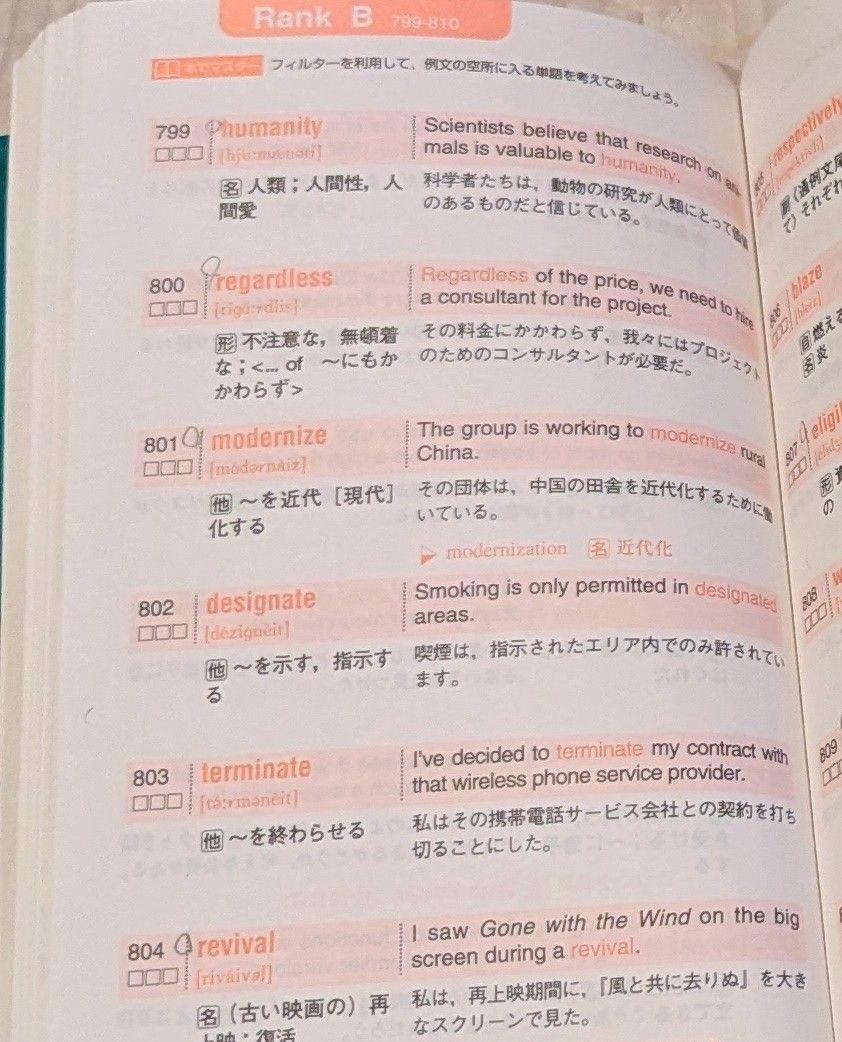 Rank B 799-810
赤でマスター フィルターを利用して，例文の空所に入る単語を考えてみましょう。
799 humanity
[hju:mǽnəti]
名 人類；人間性，人
間愛
Scientists believe that research on ani-
mals is valuable to humanity.
科学者たちは，動物の研究が人類にとって価値
のあるものだと信じている。
800 regardless
[rigá:rdlis]
形 不注意な，無頓着
な；<... of ～にもか
かわらず>
Regardless of the price, we need to hire
a consultant for the project.
その料金にかかわらず，我々にはプロジェクト
のためのコンサルタントが必要だ。
801 modernize
[mɑ́dərnàiz]
他 ～を近代［現代］
化する
The group is working to modernize rural
China.
その団体は，中国の田舎を近代化するために働
いている。
modernization 名 近代化
802 designate
[dézignèit]
他 ～を示す，指示す
る
Smoking is only permitted in designated
areas.
喫煙は，指示されたエリア内でのみ許されてい
ます。
803 terminate
[tə́:rmənèit]
他 ～を終わらせる
I've decided to terminate my contract with
that wireless phone service provider.
私はその携帯電話サービス会社との契約を打ち
切ることにした。
804 revival
[riváivəl]
名（古い映画の）再
上映；復活
I saw Gone with the Wind on the big
screen during a revival.
私は，再上映期間に，『風と共に去りぬ』を大き
なスクリーンで見た。
805 respectively
て）それぞれ
806 blaze
[bleiz]
自 燃える
名 炎
807
形
の
808
809